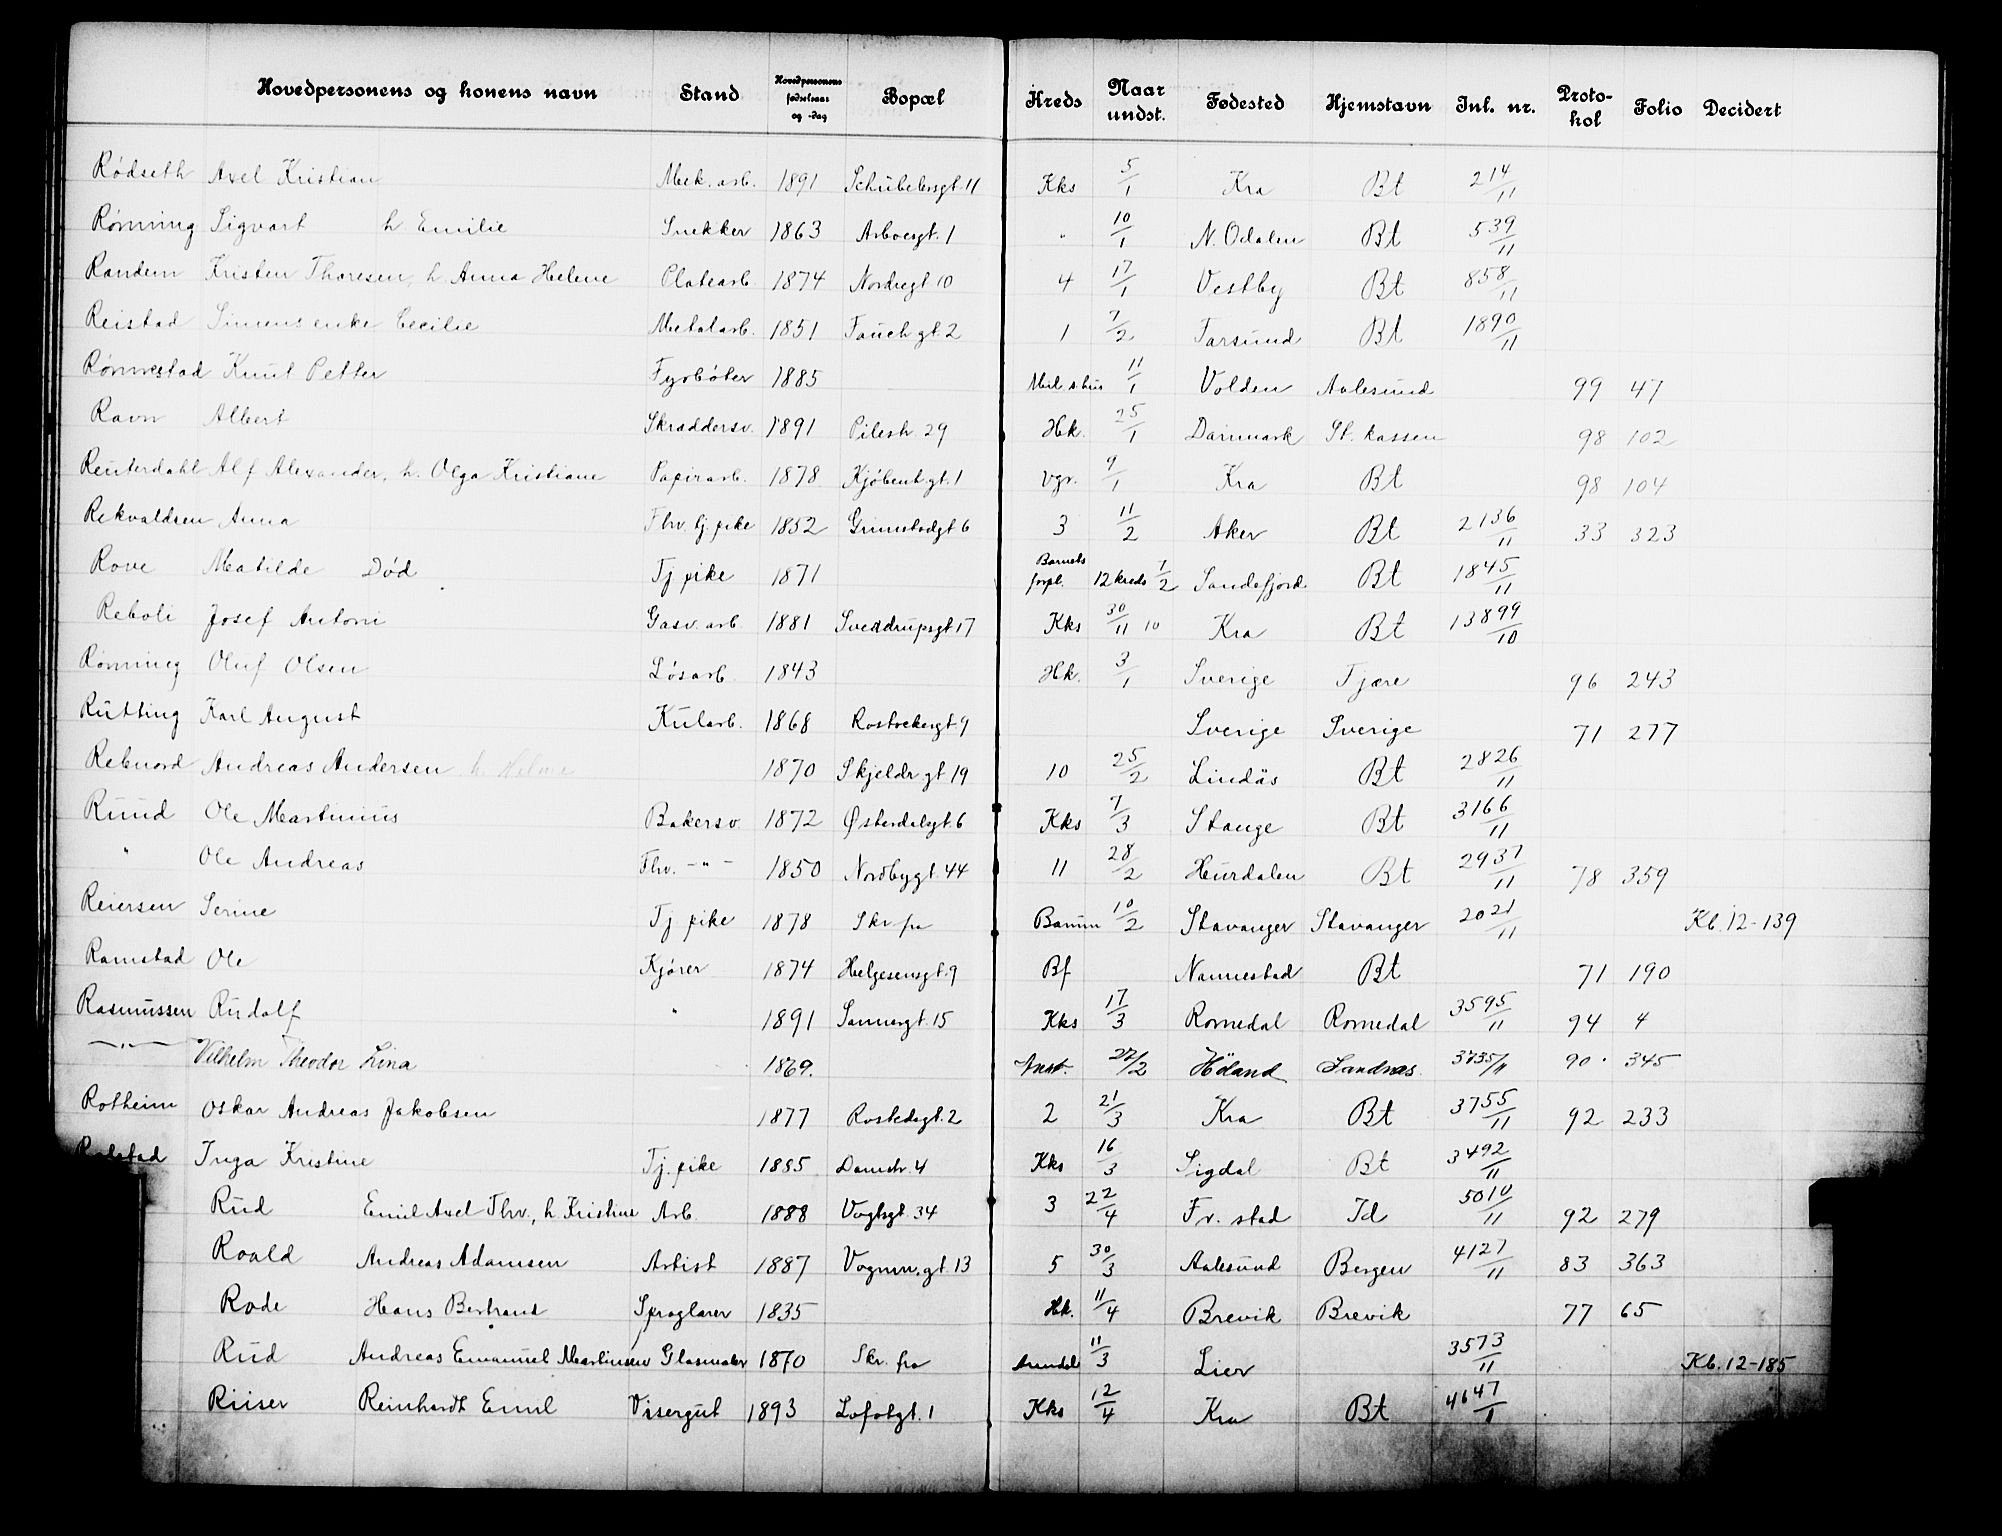 Hovedpersonens og konens navn Stand Hovedpersonens fødselsaar og -dag Bopæl Kreds Naar undst. Fødested Hjemstavn Inl. nr. Protokol Folio Decidert
Rødseth Axel Kristian Mek. arb. 1891 Schübelersgt. 11 Kks 5/1 Kra Bt 214/11
Rønning Sigvart h. Emilie Snekker 1863 Arboesgt. 1 " 10/1 N. Odalen Bt 539/11
Randem Kristen Thoresen, h. Anna Helene Platearb. 1874 Nordregt 10 4 17/1 Vestby Bt 858/11
Reistad Simens enke Cecilie Metalarb. 1851 Fauch gt. 2 1 7/2 Farsund Bt 1890/11
Rønnestad Knut Petter Fyrbøter 1885 11/1 Volden Aalesund 99 47
Ravn Albert Skræddersv. 1891 Pilestr. 29 Hk. 25/1 Danmark St. kassen 98 102
Reuterdahl Alf Alexander, h. Olga Kristiane Papirarb. 1878 Kjøbenh.gt. 1 Vgr. 9/1 Kra Bt 98 104
Rekvaldsen Anna Fhv. tj. pike 1852 Grimstadgt 6 3 11/2 Aker Bt 2136/11 33 323
Rove Matilde Død Tj pike 1871 Barnets forpl. 12 kreds 7/2 Sandefjord Bt 1845/11
Reboli Josef Antoni Gasv. arb. 1881 Sverdrupsgt 17 Kks 30/11 10 Kra Bt 13899/10
Rønning Oluf Olsen Løsarb. 1843 Hk. 3/1 Sverige Tjære 96 243
Rutting Karl August Kularb. 1868 Rostockergt 9 Sverige Sverige 71 277
Rebnord Andreas Andersen h Helene 1870 Skjeldr gt 19 10 25/2 Lindås Bt 2826/11
Ruud Ole Martinius Bakersv. 1872 Østerdalsgt. 6 Kks 7/3 Stange Bt 3166/11
" Ole Andreas Fhv. -"- 1850 Nordbygt. 44 11 28/2 Hurdalen Bt 2937/11 78 359
Reiersen Serine Tj pike 1878 Skr. fra Bamm 10/2 Stavanger Stavanger 2021/11 Kb. 12-139
Ramstad Ole Kjører 1874 Helgesensgt. 9 Bf Nannestad Bt 71 190
Rasmussen Rudolf " 1891 Sannergt. 15 Kks 17/3 Romedal Romedal 3595/11 94 4
-"- Vilhelm Theodor Lina 1869. 27/2 Höland Sandnas 3735/11 90 345
Rotheim Oskar Andreas Jakobsen 1877 Rostedsgt. 2 2 21/3 Kra Bt 3755/11 92 233
Inga Kristine Tj. pike 1885 Damstr. 4 Kks 16/3 Sigdal Bt 3492/11
Rud Emil Axel Thv., h Kristine Arb. 1888 Vogtsgt. 34 3 22/4 Fr. stad Id 5010/11 92 279
Roald Andreas Adamsen Artist 1887 Vognm.gt. 13 5 30/3 Aalesund Bergen 4127/11 83 363
Rode Hans Bertrand Sproglærer 1835 Hk. 11/4 Brevik Brevik 77 65
Rud Andreas Emanuel Martinsen Glasmaler 1870 Skr. fra Arendal 11/3 Lier 3573/11 Kb. 12-185
Riiser Reinhardt Emil Visergut 1893 Lofotgt. 1 Kks 12/4 Kra Bt 4647/1